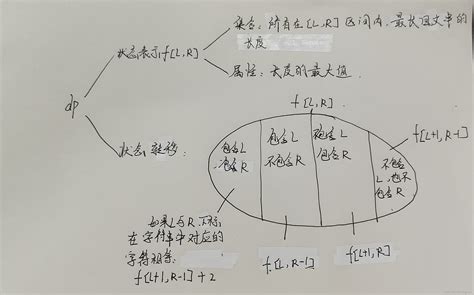 dp
状态表示f[L,R]
集合:所有在[L,R]区间内,最长回文串的
长度
属性:长度的最大值
状态转移
f[L,R]
包含L
包含R
包含L
不包含R
不包含L
包含R
不包含
L,也不
包含R
f[L+1,R-1]
如果L与R下标,
在字符串中对应的
字符相等:
f[L+1,R-1]+2
f[L,R-1]
f[L+1,R]